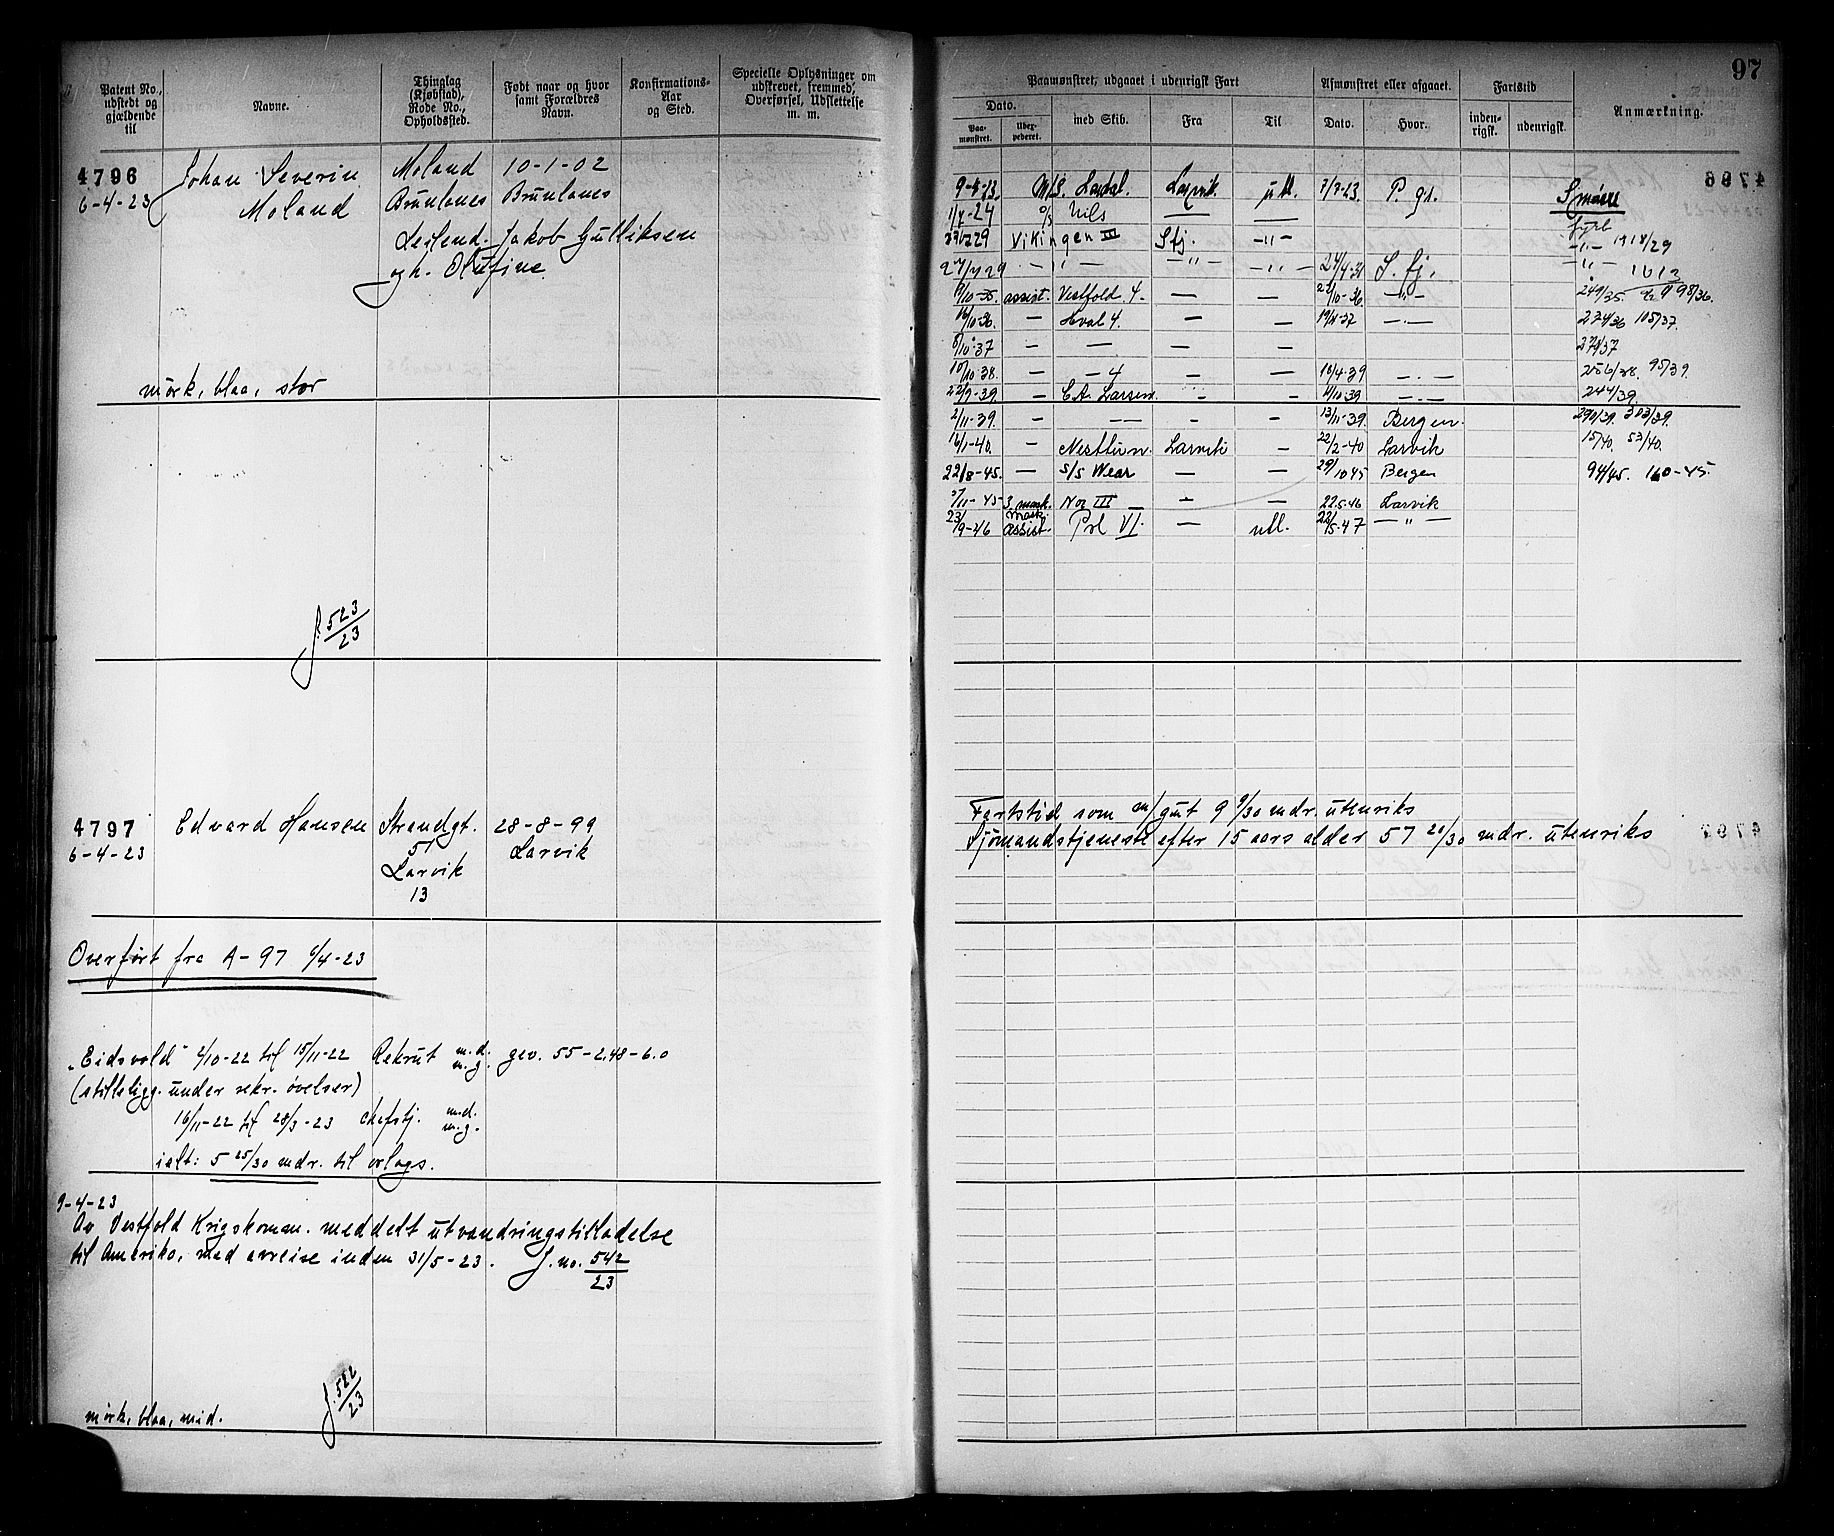 97
Patent No., udstedt og gjældende til
Navne.
Thinglag (Kjøbstad), Rode No., Opholdssted.
Født naar og hvor samt Forældres Navn.
Konfirmations-Aar og Sted.
Specielle Oplysninger om udskrevet, fremmed, Overførsel, Udslettelse m. m.
Paamønstret, udgaaet i udenrigsk Fart
Afmønstret eller afgaaet.
Fartstid
Anmærkning.
Dato.
med Skib.
Fra
Til
Dato.
Hvor.
inden-rigsk.
udenrigsk.
Paa-mønstret.
4796
6-4-23
Johan Severin
Moland
Moland
Brunlanes
10-1-02
Brunlanes
Leilend. Jakob Gulliksen
og h. Olufine
mørk, blaa, stor
J. 523/23
M/S. Lardal. Larvik utl. 7/7-23. P. gr. Smøre
1/7-24 Nils — — fyrb
Vikingen III Sfj. -"- -"- 1918/29
-"- -"- -"- 24/4-31 S.fj. -"- 1613
assist. Vestfold 4. — — -"- 249/35. 98/36.
16/10-36. — Hval 4. — — 19/4-37 -"- 274/36 105/37.
8/10-37 — — — — 274/37
10/10-38. — — 4 — 18/4-39 -"- 256/38. 95/39.
22/9-39. — C.A. Larsen. — 11/10-39 -"- 244/39.
2/11-39. — — — — 13/11-39. Bergen. 290/39. 303/39.
16/1-40. — Nesttun. Larvik — 22/2-40 Larvik 15/40. 53/40.
22/8-45. — S/S Wear — — 29/10 45 Bergen 94/45. 160-45.
3/11-45 3. mask. Nor III — — 22.5.46 Larvik
23/9-46 Mask. assist. Pol VI. — utl. 22/5-47 —"—
4797
6-4-23
Edvard Hansen
Strandgt.
51
Larvik
13
28-8-99
Larvik
Fartstid som m/gut 9 9/30 mdr. utenriks
Sjømandstjeneste efter 15 aars alder 57 20/30 mdr. utenriks
Overført fra A-97 6/4-23
"Eidsvold" 2/10-22 til 15/11-22 Rekrut m.d. m.g. gev. 55-2.48-6.0
(stilleligg. under rekr. øvelser)
16/11-22 til 28/3-23 chefstj. m.d. m.g.
ialt: 5 25/30 mdr. til orlogs.
9-4-23
Av Vestfold Krigskomm. meddelt utvandringstilladelse
til Amerika, med avreise inden 31/5-23. J. no. 542/23
J. 522/23
mørk, blaa, mid.